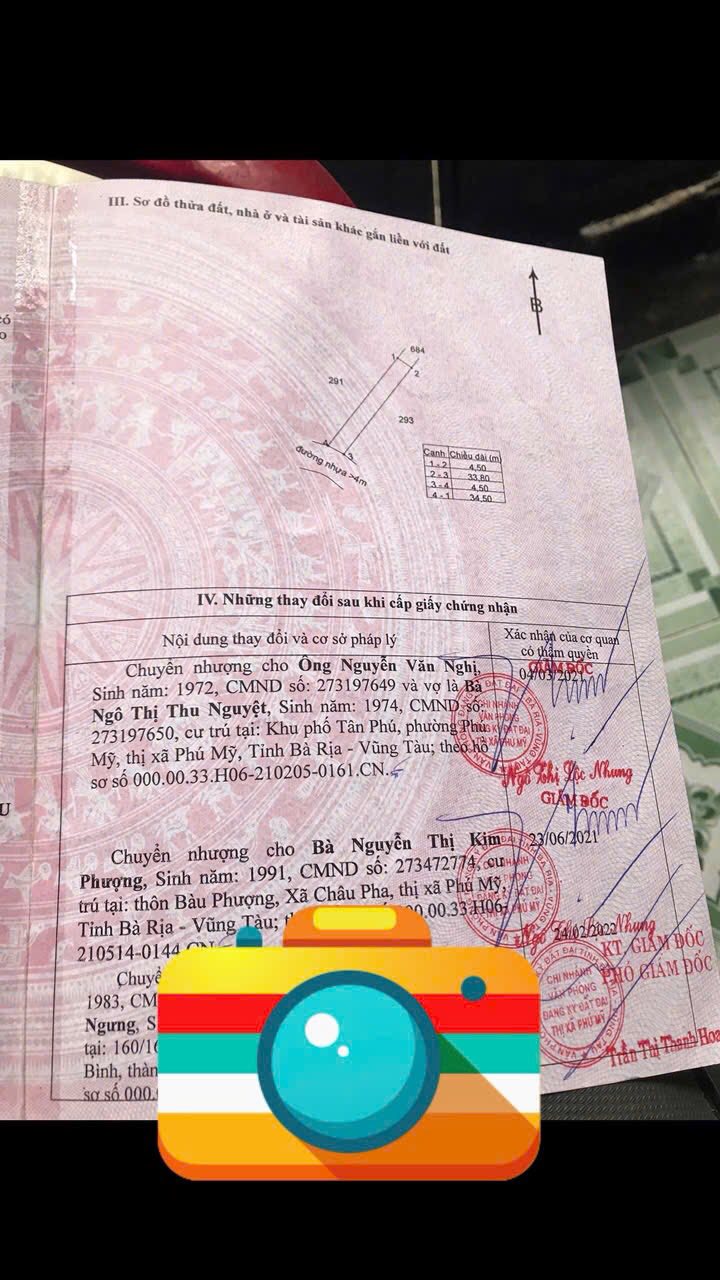 III. Sơ đồ thửa đất, nhà ở và tài sản khác gắn liền với đất
B
684
1
2
291
293
4
3
đường nhựa >4m
Cạnh Chiều dài (m)
1 - 2 4,50
2 - 3 33,80
3 - 4 4,50
4 - 1 34,50
IV. Những thay đổi sau khi cấp giấy chứng nhận
Nội dung thay đổi và cơ sở pháp lý
Xác nhận của cơ quan
có thẩm quyền
Chuyển nhượng cho Ông Nguyễn Văn Nghị,
Sinh năm: 1972, CMND số: 273197649 và vợ là Bà
Ngô Thị Thu Nguyệt, Sinh năm: 1974, CMND số:
273197650, cư trú tại: Khu phố Tân Phú, phường Phú
Mỹ, thị xã Phú Mỹ, Tỉnh Bà Rịa - Vũng Tàu; theo hồ
sơ số 000.00.33.H06-210205-0161.CN.
04/03/2021
GIÁM ĐỐC
CHI NHÁNH
VĂN PHÒNG
ĐĂNG KÝ ĐẤT ĐAI
THỊ XÃ PHÚ MỸ
Ngô Thị Lộc Nhung
Chuyển nhượng cho Bà Nguyễn Thị Kim
Phượng, Sinh năm: 1991, CMND số: 273472774, cư
trú tại: thôn Bàu Phượng, Xã Châu Pha, thị xã Phú Mỹ,
Tỉnh Bà Rịa - Vũng Tàu; 00.00.33.H06-
210514-0144.CN.
GIÁM ĐỐC
23/06/2021
Nhung
Chuyể
1983, CM
Ngưng, S
tại: 160/16
Bình, thàn
sơ số 000.
24/02/2022
KT GIÁM ĐỐC
PHÓ GIÁM ĐỐC
CHI NHÁNH
VĂN PHÒNG
ĐĂNG KÝ ĐẤT ĐAI
THỊ XÃ PHÚ MỸ
Trần Thị Thanh Hoa
có
o
U